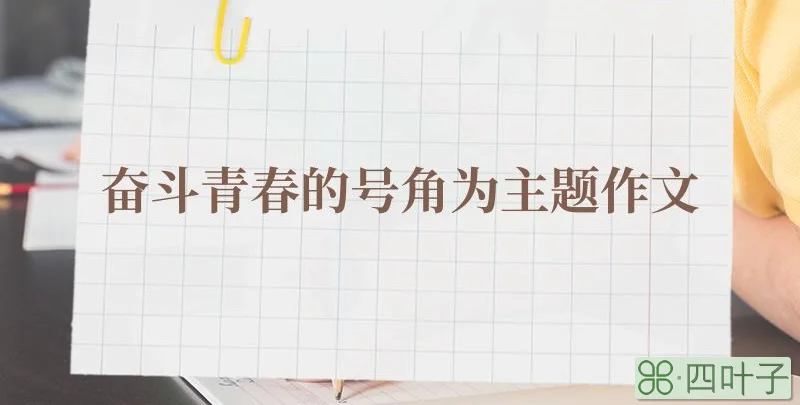 奋斗青春的号角为主题作文
四叶子